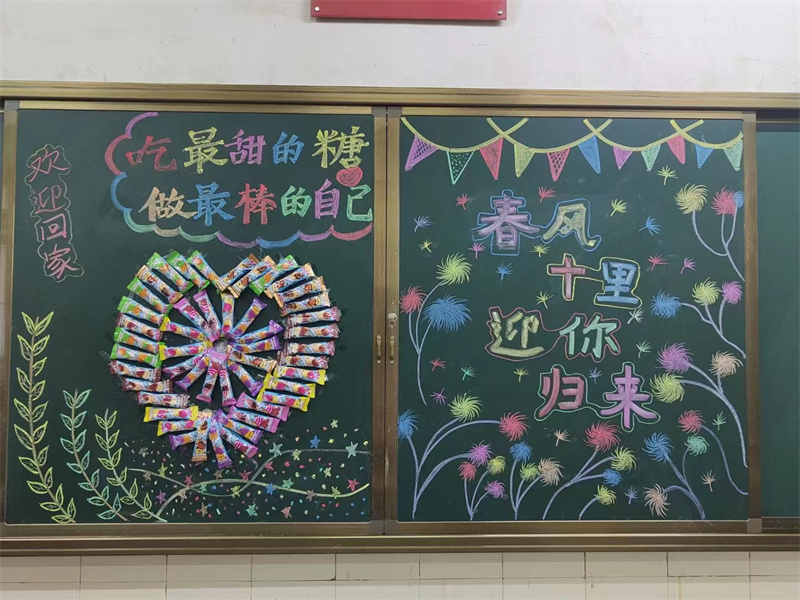 欢迎回家
吃最甜的糖
做最棒的自己
春风
十里
迎你
归来